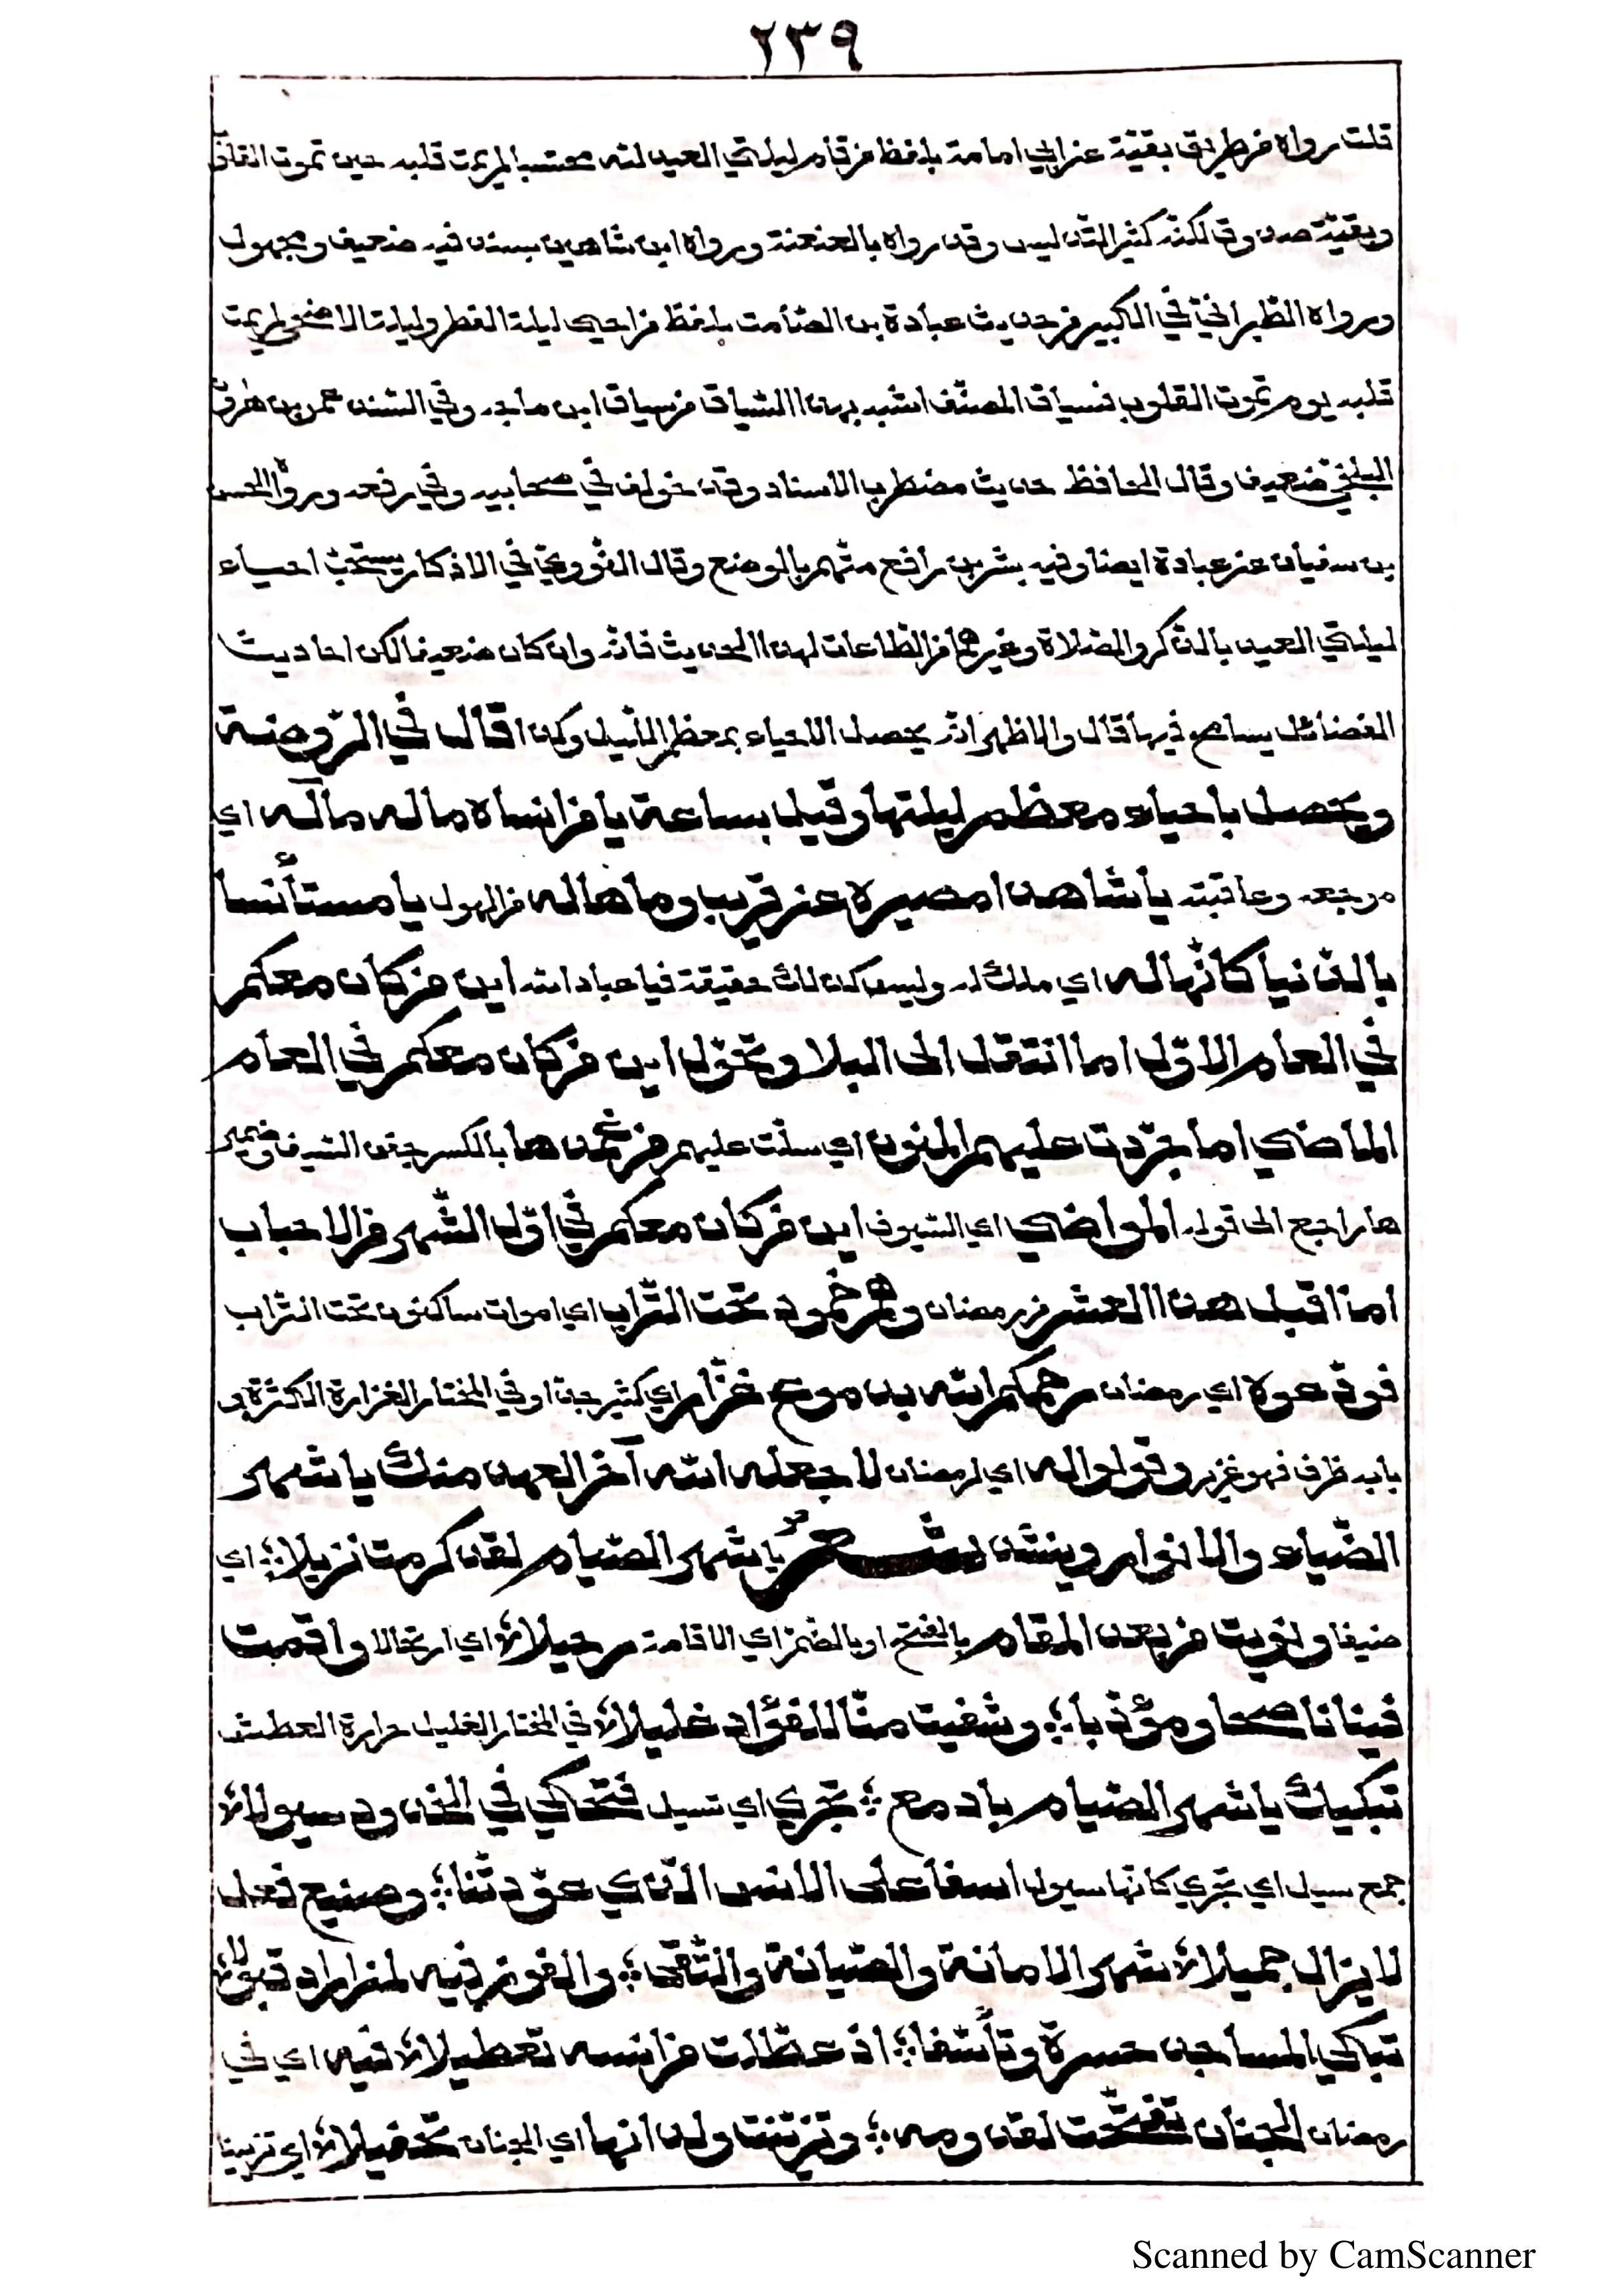 ٢٣٩
قلت رواه من طريق بقية عن ابي امامة بلفظ من قام ليلتي العيد لله محتسبا لم يمت قلبه حين تموت القلوب
وبقية صدوق لكنه كثير التدليس وقد رواه بالعنعنة ورواه ابن شاهين بسند فيه ضعيف ومجهول
ورواه الطّبرانيّ في الكبير من حديث عبادة بن الصّامت بلفظ من احيى ليلة الفطر وليلة الاضحى لم يمت
قلبه يوم تموت القلوب فسياق المصنّف اشبه بهذا السّياق من سياق ابن ماجه وفي السّند عمر بن هارون
البلخيّ ضعيف وقال الحافظ حديث مضطرب الاسناد وقد خولف في صحابيه وفي رفعه ورواه الحسن
بن سفيان عن عبادة ايضا وفيه بشر بن رافع متّهم بالوضع وقال النّوويّ في الاذكار يستحبّ احياء
ليلتي العيد بالذّكر والصّلاة وغيرهما من الطّاعات لهذا الحديث فانّه وان كان ضعيفا لكن احاديث
الفضائل يسامح فيها قال والاظهر انّه يحصل الاحياء بمعظم اللّيل وكذا قال في الرّوضة
ويحصل باحياء معظم ليلتها وقيل بساعة يا من انساه ماله مآله اي
مرجعه وعاقبته يا شاهدا مصيره عن قريب وما هاله من الهول يا مستأنسا
بالدّنيا كانّها له اي ملك له وليس كذلك حقيقة فيا عباد الله اين من كان معكم
في العام الاوّل اما انتقل الى البلا وتحوّل اين من كان معكم في العام
الماضي اما جرّدت عليهم المنون اي سلّت عليهم من غمدها بالكسر جفن السّيف وضمير
ها راجع الى قوله المواضي اي السّيوف اين من كان معكم في اوّل الشّهر من الاحباب
اما اقبل هذا العشر من رمضان وهم خمود تحت التّراب اي اموات ساكنون تحت التّراب
فودّعوه اي رمضان رحمكم الله بدموع غزار اي كثير جدا وفي المختار الغزارة الكثرة و
بابه ظرف فهو غزير وقولوا له اي لرمضان لا جعله الله آخر العهد منك يا شهر
الضّياء والانوار وينشد شعر يا شهر الصّيام لقد كرمت نزيلا؛ اي
ضيفا ونويت من بعد المقام بالفتح او بالضّمّ اي الاقامة رحيلا؛ اي ارتحالا واقمت
فينا ناصحا ومؤدّبا؛ وشفيت منّا للفؤاد غليلا؛ في المختار الغليل حرارة العطش
تبكيك يا شهر الصّيام بادمع؛ تجري اي تسيل فتحاكي في الخدود سيولا؛
جمع سيل اي تجري كانّها سيول اسفا على الانس الّذي عوّدتّنا؛ وصنيع فعل
لا يزال جميلا؛ شهر الامانة والصّيانة والتّقى؛ والفوز فيه لمن اراد قبولا؛
تباكي المساجد حسرة وتأسّفا؛ اذ عطّلت من انسه تعطيلا؛ فيه اي في
رمضان الجنان تفتّحت لقدومه؛ وتزيّنت ولدانها اي الجنان تحفيلا؛ اي تزيينا
Scanned by CamScanner